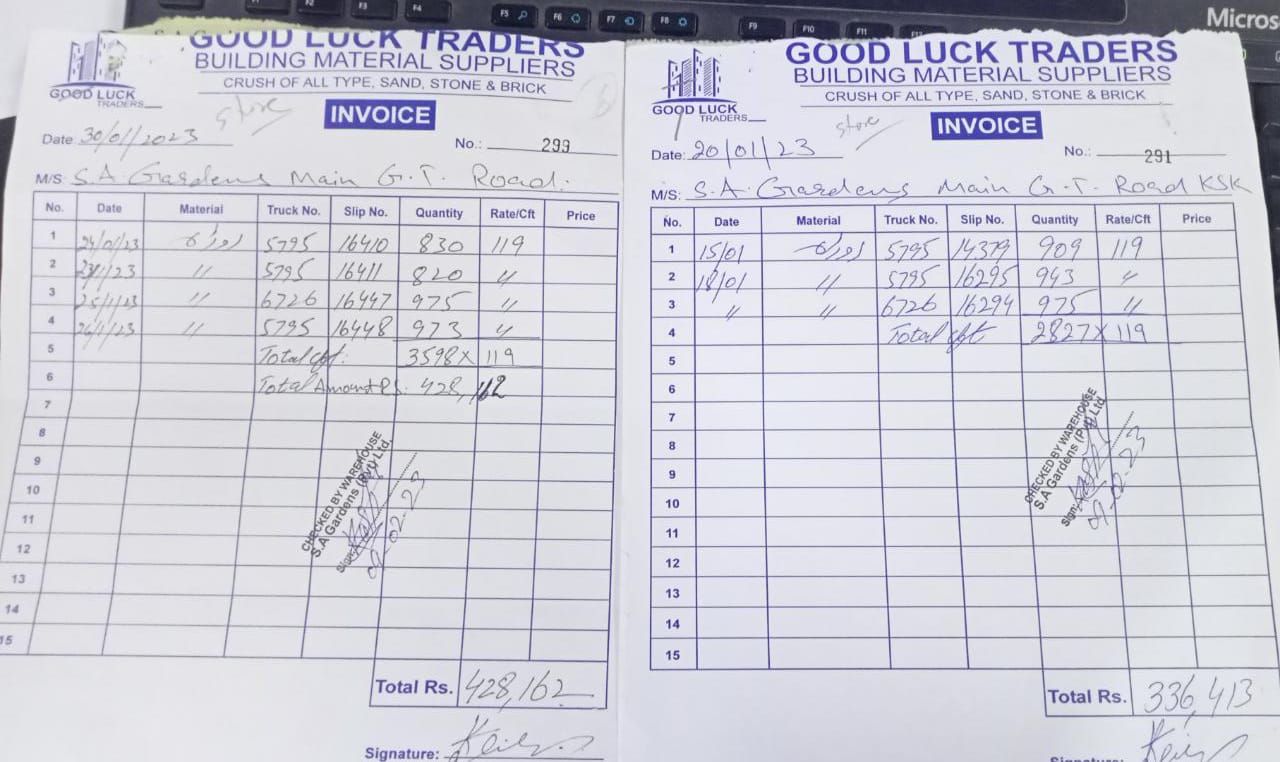 F4 F5 F6 F7 F8 F9 F10 F11 F12
Micros
GOOD LUCK TRADERS
BUILDING MATERIAL SUPPLIERS
CRUSH OF ALL TYPE, SAND, STONE & BRICK
GOOD LUCK
TRADERS
store
INVOICE
Date 30/01/2023
No.: 299
M/S: S.A. Gardens Main G.T. Road.
No. Date Material Truck No. Slip No. Quantity Rate/Cft Price
1 24/01/23 5795 16410 830 119
2 〃 5795 16411 820 〃
3 25/1/23 〃 6726 16447 975 〃
4 26/1/23 〃 5795 16448 973 〃
5 Total cft: 3598 x 119
6 Total Amount Rs. 428,162
7
8
9
10
11
12
13
14
15
CHECKED BY WAREHOUSE
S.A Gardens (Pvt) Ltd.
Sign:
01-02-23
Total Rs. 428,162
Signature:
GOOD LUCK TRADERS
BUILDING MATERIAL SUPPLIERS
CRUSH OF ALL TYPE, SAND, STONE & BRICK
GOOD LUCK
TRADERS
store
INVOICE
Date: 20/01/23
No.: 291
M/S: S.A. Gardens Main G.T. Road KSK
No. Date Material Truck No. Slip No. Quantity Rate/Cft Price
1 15/01 5795 14379 909 119
2 18/01 〃 5795 16295 943 〃
3 〃 〃 6726 16294 975 〃
4 Total cft 2827 x 119
5
6
7
8
9
10
11
12
13
14
15
CHECKED BY WAREHOUSE
S.A Gardens (Pvt) Ltd.
Sign:
01-02-23
Total Rs. 336,413
Signature: